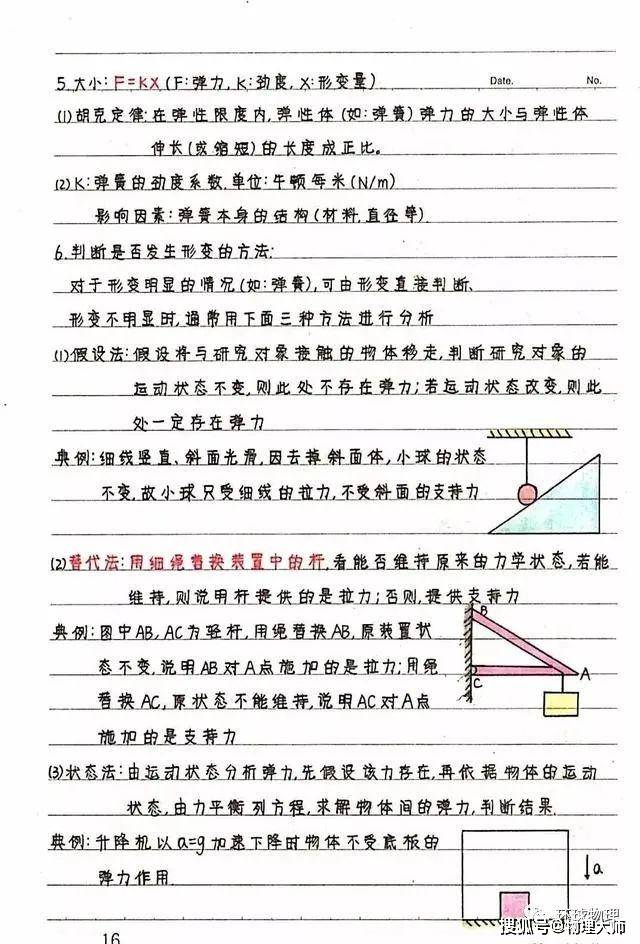 5.大小:F=KX(F:弹力,K:劲度,X:形变量)
Date. No.
(1)胡克定律:在弹性限度内,弹性体(如:弹簧)弹力的大小与弹性体
伸长(或缩短)的长度成正比。
(2)K:弹簧的劲度系数,单位:牛顿每米(N/m)
影响因素:弹簧本身的结构(材料.直径等)
6.判断是否发生形变的方法:
对于形变明显的情况(如:弹簧),可由形变直接判断、
形变不明显时,通常用下面三种方法进行分析
(1)假设法:假设将与研究对象接触的物体移走,判断研究对象的
运动状态不变,则此处不存在弹力;若运动状态改变,则此
处一定存在弹力
典例:细线竖直、斜面光滑,因去掉斜面体,小球的状态
不变,故小球只受细线的拉力,不受斜面的支持力
(2)替代法:用细绳替换装置中的杆,看能否维持原来的力学状态,若能
维持,则说明杆提供的是拉力;否则,提供支持力
典例:图中AB,AC为轻杆,用绳替换AB,原装置状
态不变,说明AB对A点施加的是拉力;用绳
替换AC,原状态不能维持,说明AC对A点
施加的是支持力
B
C
A
(3)状态法:由运动状态分析弹力,先假设该力存在,再依据物体的运动
状态,由力平衡列方程,求解物体间的弹力,判断结果.
典例:升降机以a=g加速下降时物体不受底板的
弹力作用.
a
环球物理
搜狐号@物理大师
16